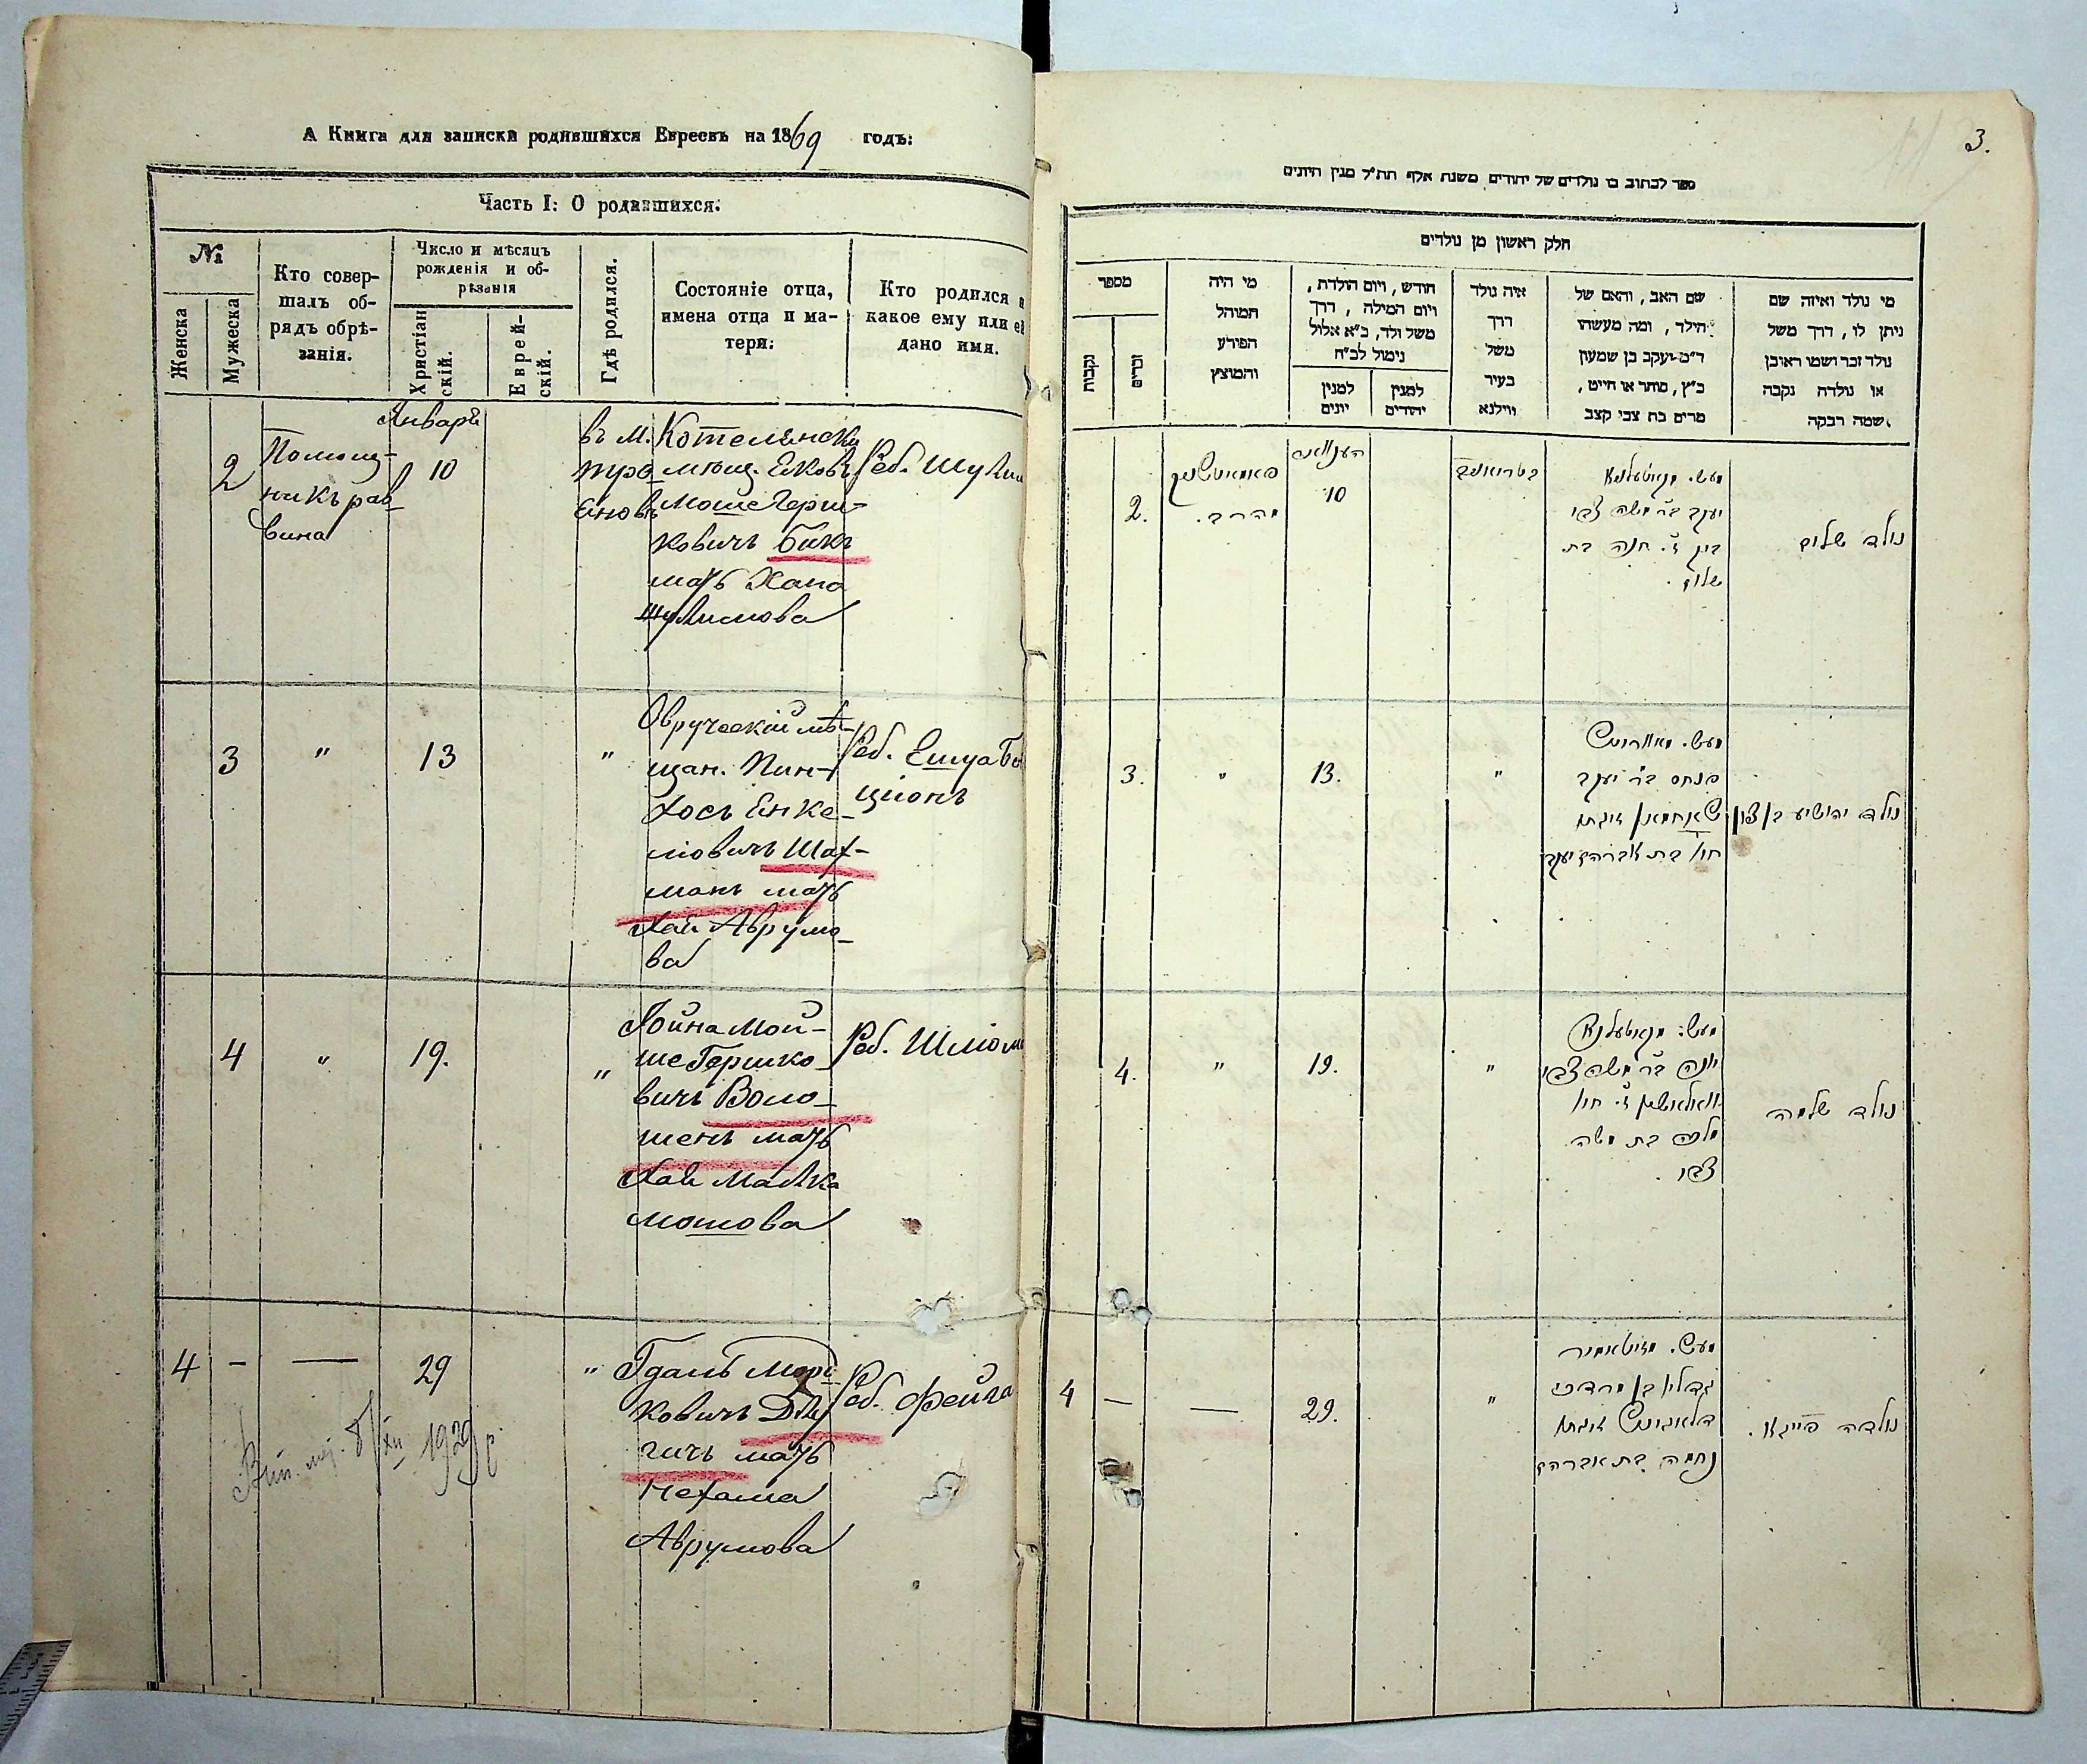 А Книга для записки родившихся Евреевъ на 1869 годъ:
Часть I: О родившихся.
№
Женска
Мужеска
Кто совер-
шалъ об-
рядъ обрѣ-
занія.
Число и мѣсяцъ
рожденія и об-
рѣзанія
Христіан
скій.
Еврей-
скій.
Гдѣ родился.
Состояніе отца,
имена отца и ма-
тери:
Кто родился и
какое ему или ей
дано имя.
2
Помощ-
никъ рав-
вина
Январь
10
въ м.
тро
яновъ
Котелянски
мѣщ. Янковъ
Моше Герш-
ковичъ Бикъ
мать Хана
Шулимова
Реб. Шулим
3
"
13
"
Овруческій мѣ-
щан. Пин-
хосъ Янке-
ліовичъ Шах-
манъ мать
Хая Аврумо-
ва
Реб. Ешуа Бе
ціонъ
4
"
19.
"
Іойна Мой-
ше Гершко-
вичъ Воло-
шенъ мать
Хая Малка
Мошова
Реб. Шліом
4
-
—
29
"
Гдаль Морд
ковичъ Длу
гичъ мать
Нехама
Аврумова
Реб. Фейга
1929 р.
3.
ספר לכתוב בו נולדים של יהודים משנת אלף תת"ל מנין היונים
חלק ראשון מן נולדים
מספר
נקבות
זכרים
מי היה
המוהל
הפורע
והמוצץ
חודש, ויום הולדת,
ויום המילה, דרך
משל ולד, כ"א אלול
נימול לכ"ח
למנין
יונים
למנין
יהודים
איה נולד
דרך
משל
בעיר
ווילנא
שם האב, והאם של
הילד, ומה מעשהו
ד"מ יעקב בן שמעון
כ"ץ, סוחר או חייט,
מרים בת צבי קצב
מי נולד ואיזה שם
ניתן לו, דרך משל
נולד זכר ושמו ראובן
או נולדה נקבה
שמה רבקה.
2.
מהרב.
10
יעקב ב"ר משה צבי
ביק ז. חנה בת
שלום
נולד שלום
3.
"
13.
"
פנחס ב"ר יעקב
שאחמאן זוגתו
חיי בת אברהם יעקב
נולד יהושיע בן ציון
4.
"
19.
"
יונה ב"ר משה צבי
וואלאשין ז. חיי
מלכה בת משה
צבי.
נולד שלמה
4
—
—
29.
"
גדליי בן מרדכי
דלוגיטש זוגתו
נחמה בת אברהם
נולדה פייגא.